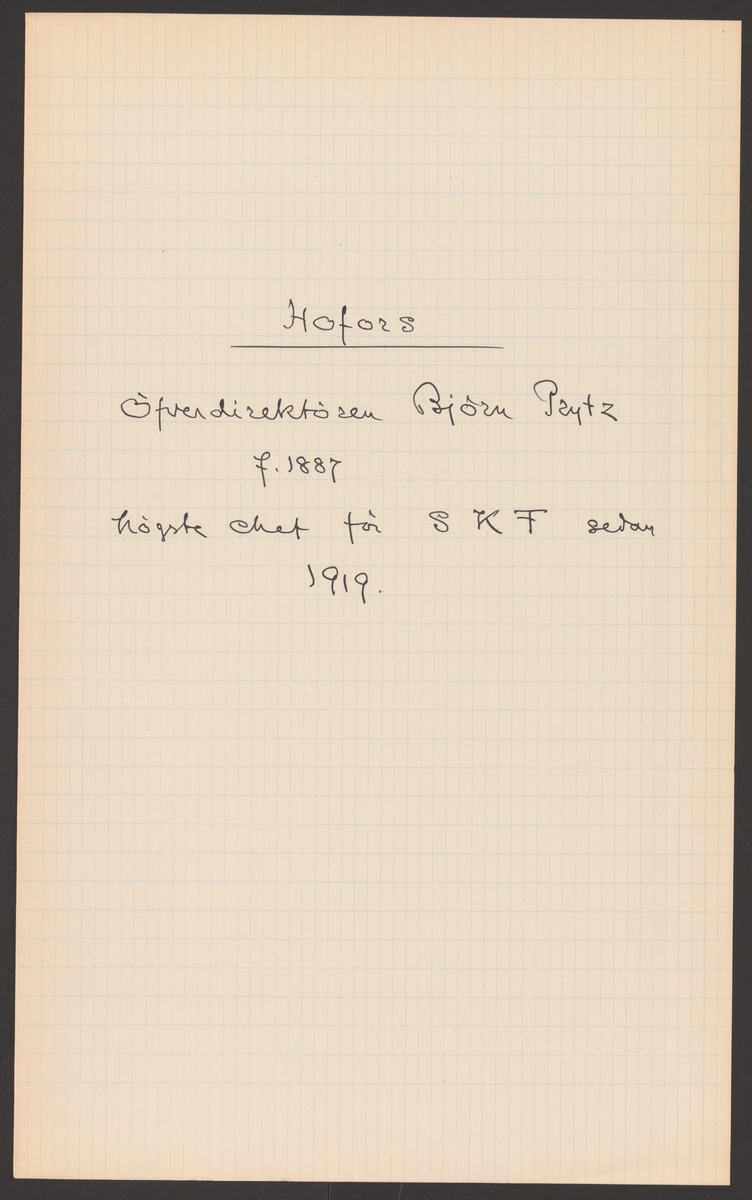 Hofors
Öfverdirektören Björn Prytz
f. 1887
högste chef för S K F sedan
1919.